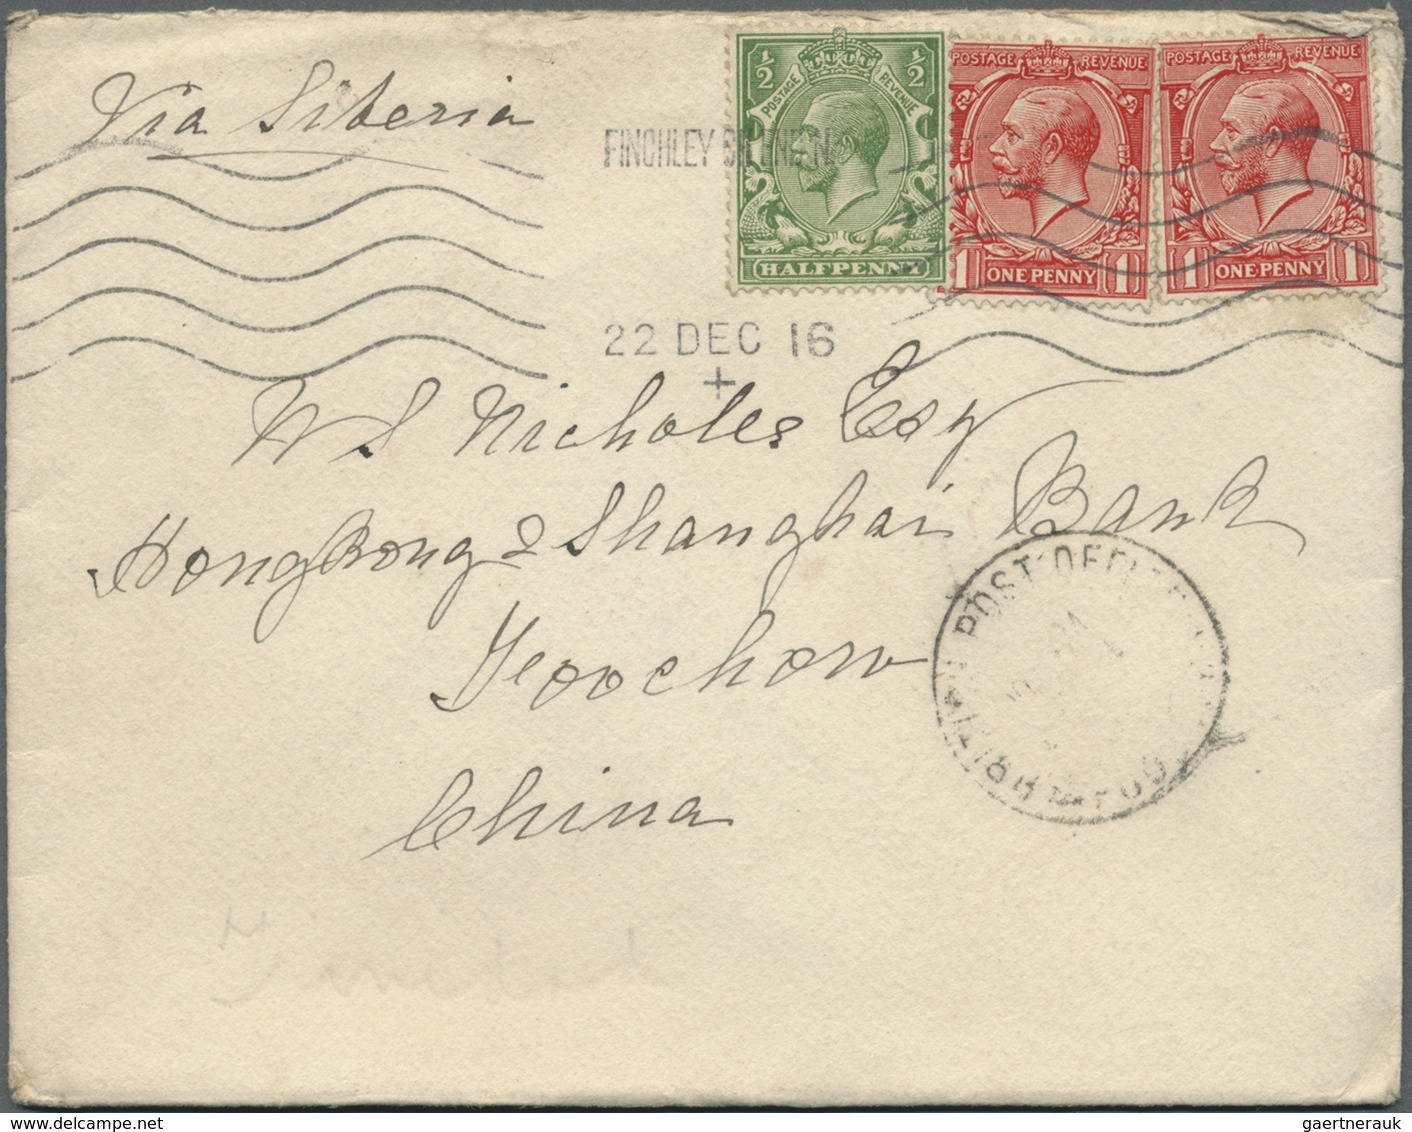 Via Siberia
½ ½
POSTAGE REVENUE
HALFPENNY
POSTAGE REVENUE
1 ONE PENNY 1
POSTAGE REVENUE
1 ONE PENNY 1
FINCHLEY
22 DEC 16
+
W S Nicholls Esq
Hongkong & Shanghai Bank
Foochow
China
POST OFFICE
BRITISH
gaertnerauk